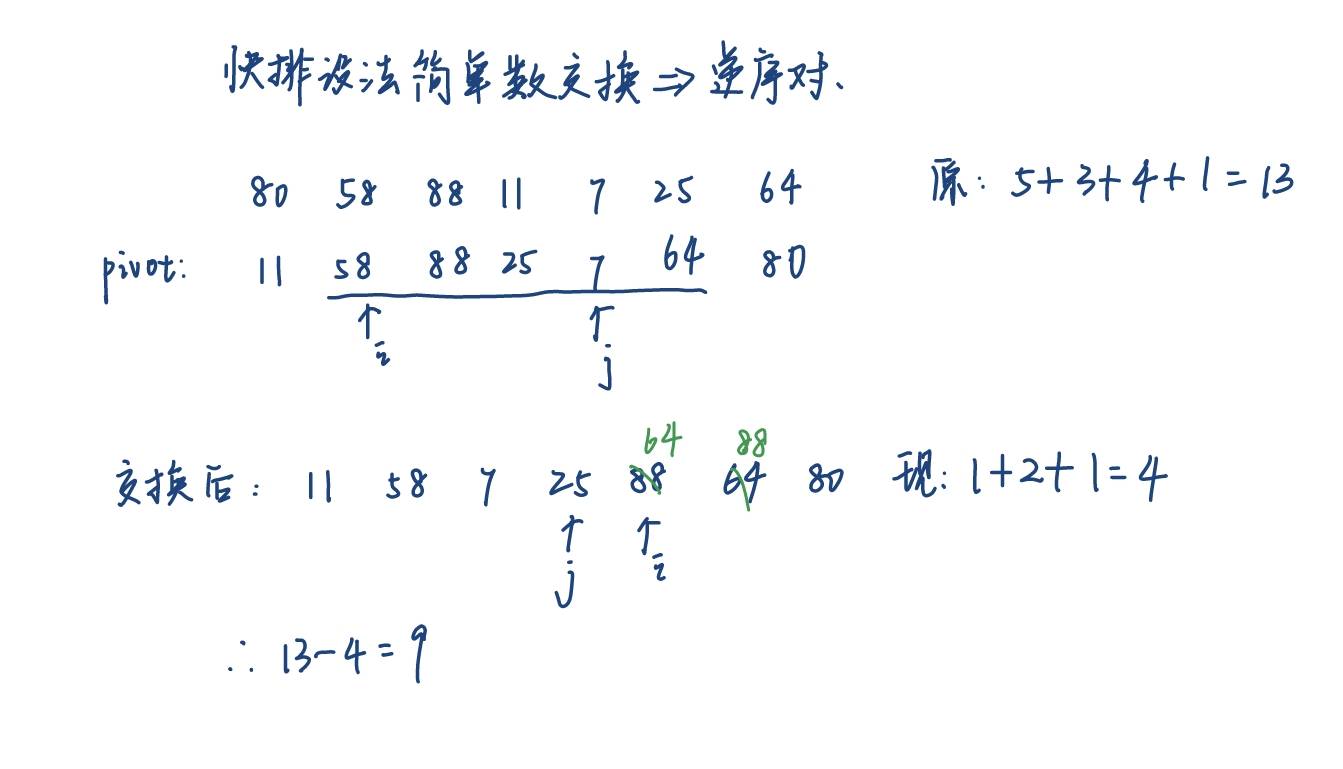 快排设法简单数交换⇒逆序对、
80 58 88 11 7 25 64 原: 5+3+4+1=13
pivot: 11 58 88 25 7 64 80
↑ ↑
i j
64 88
交换后: 11 58 7 25 88 64 80 现: 1+2+1=4
↑ ↑
j i
∴ 13-4=9